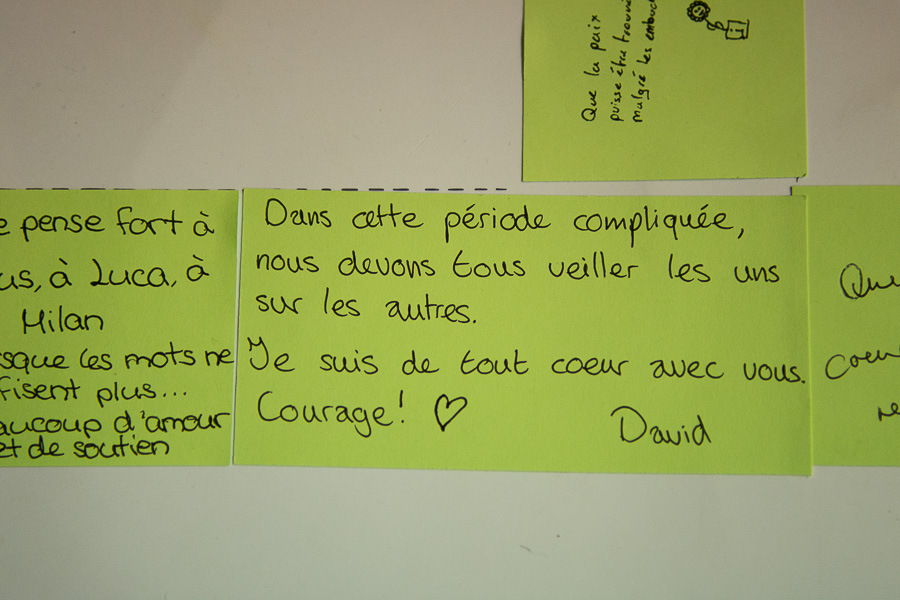 Que la paix
puisse être trouvée
malgré les
pense fort à
à Luca, à
Milan
les mots ne
plus...
d'amour
et de soutien
Dans cette période compliquée,
nous devons tous veiller les uns
sur les autres.
Je suis de tout coeur avec vous.
Courage! ♡
David